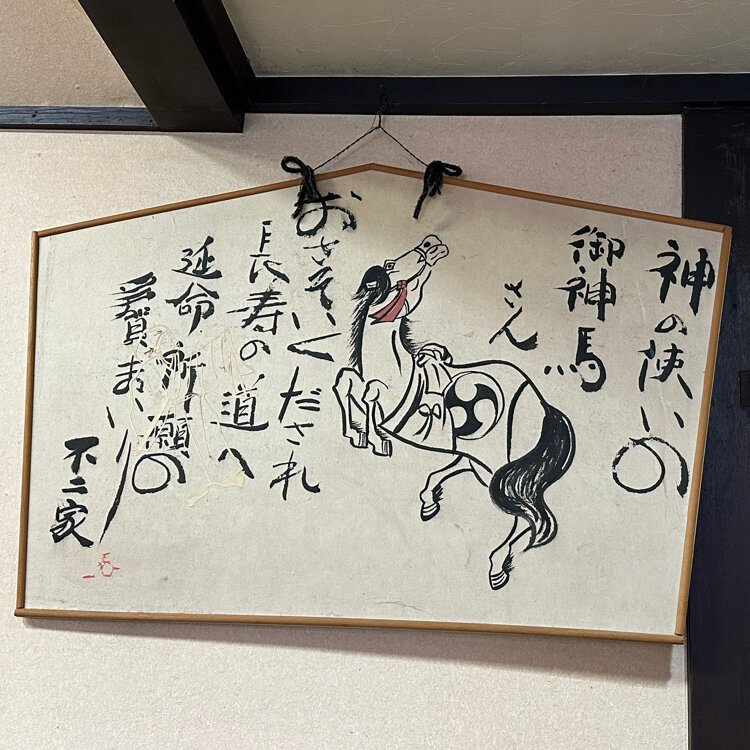 神の使いの
御神馬
さん
おさそいくだされ
長寿の道へ
延命祈願の
賀まいり
不二家